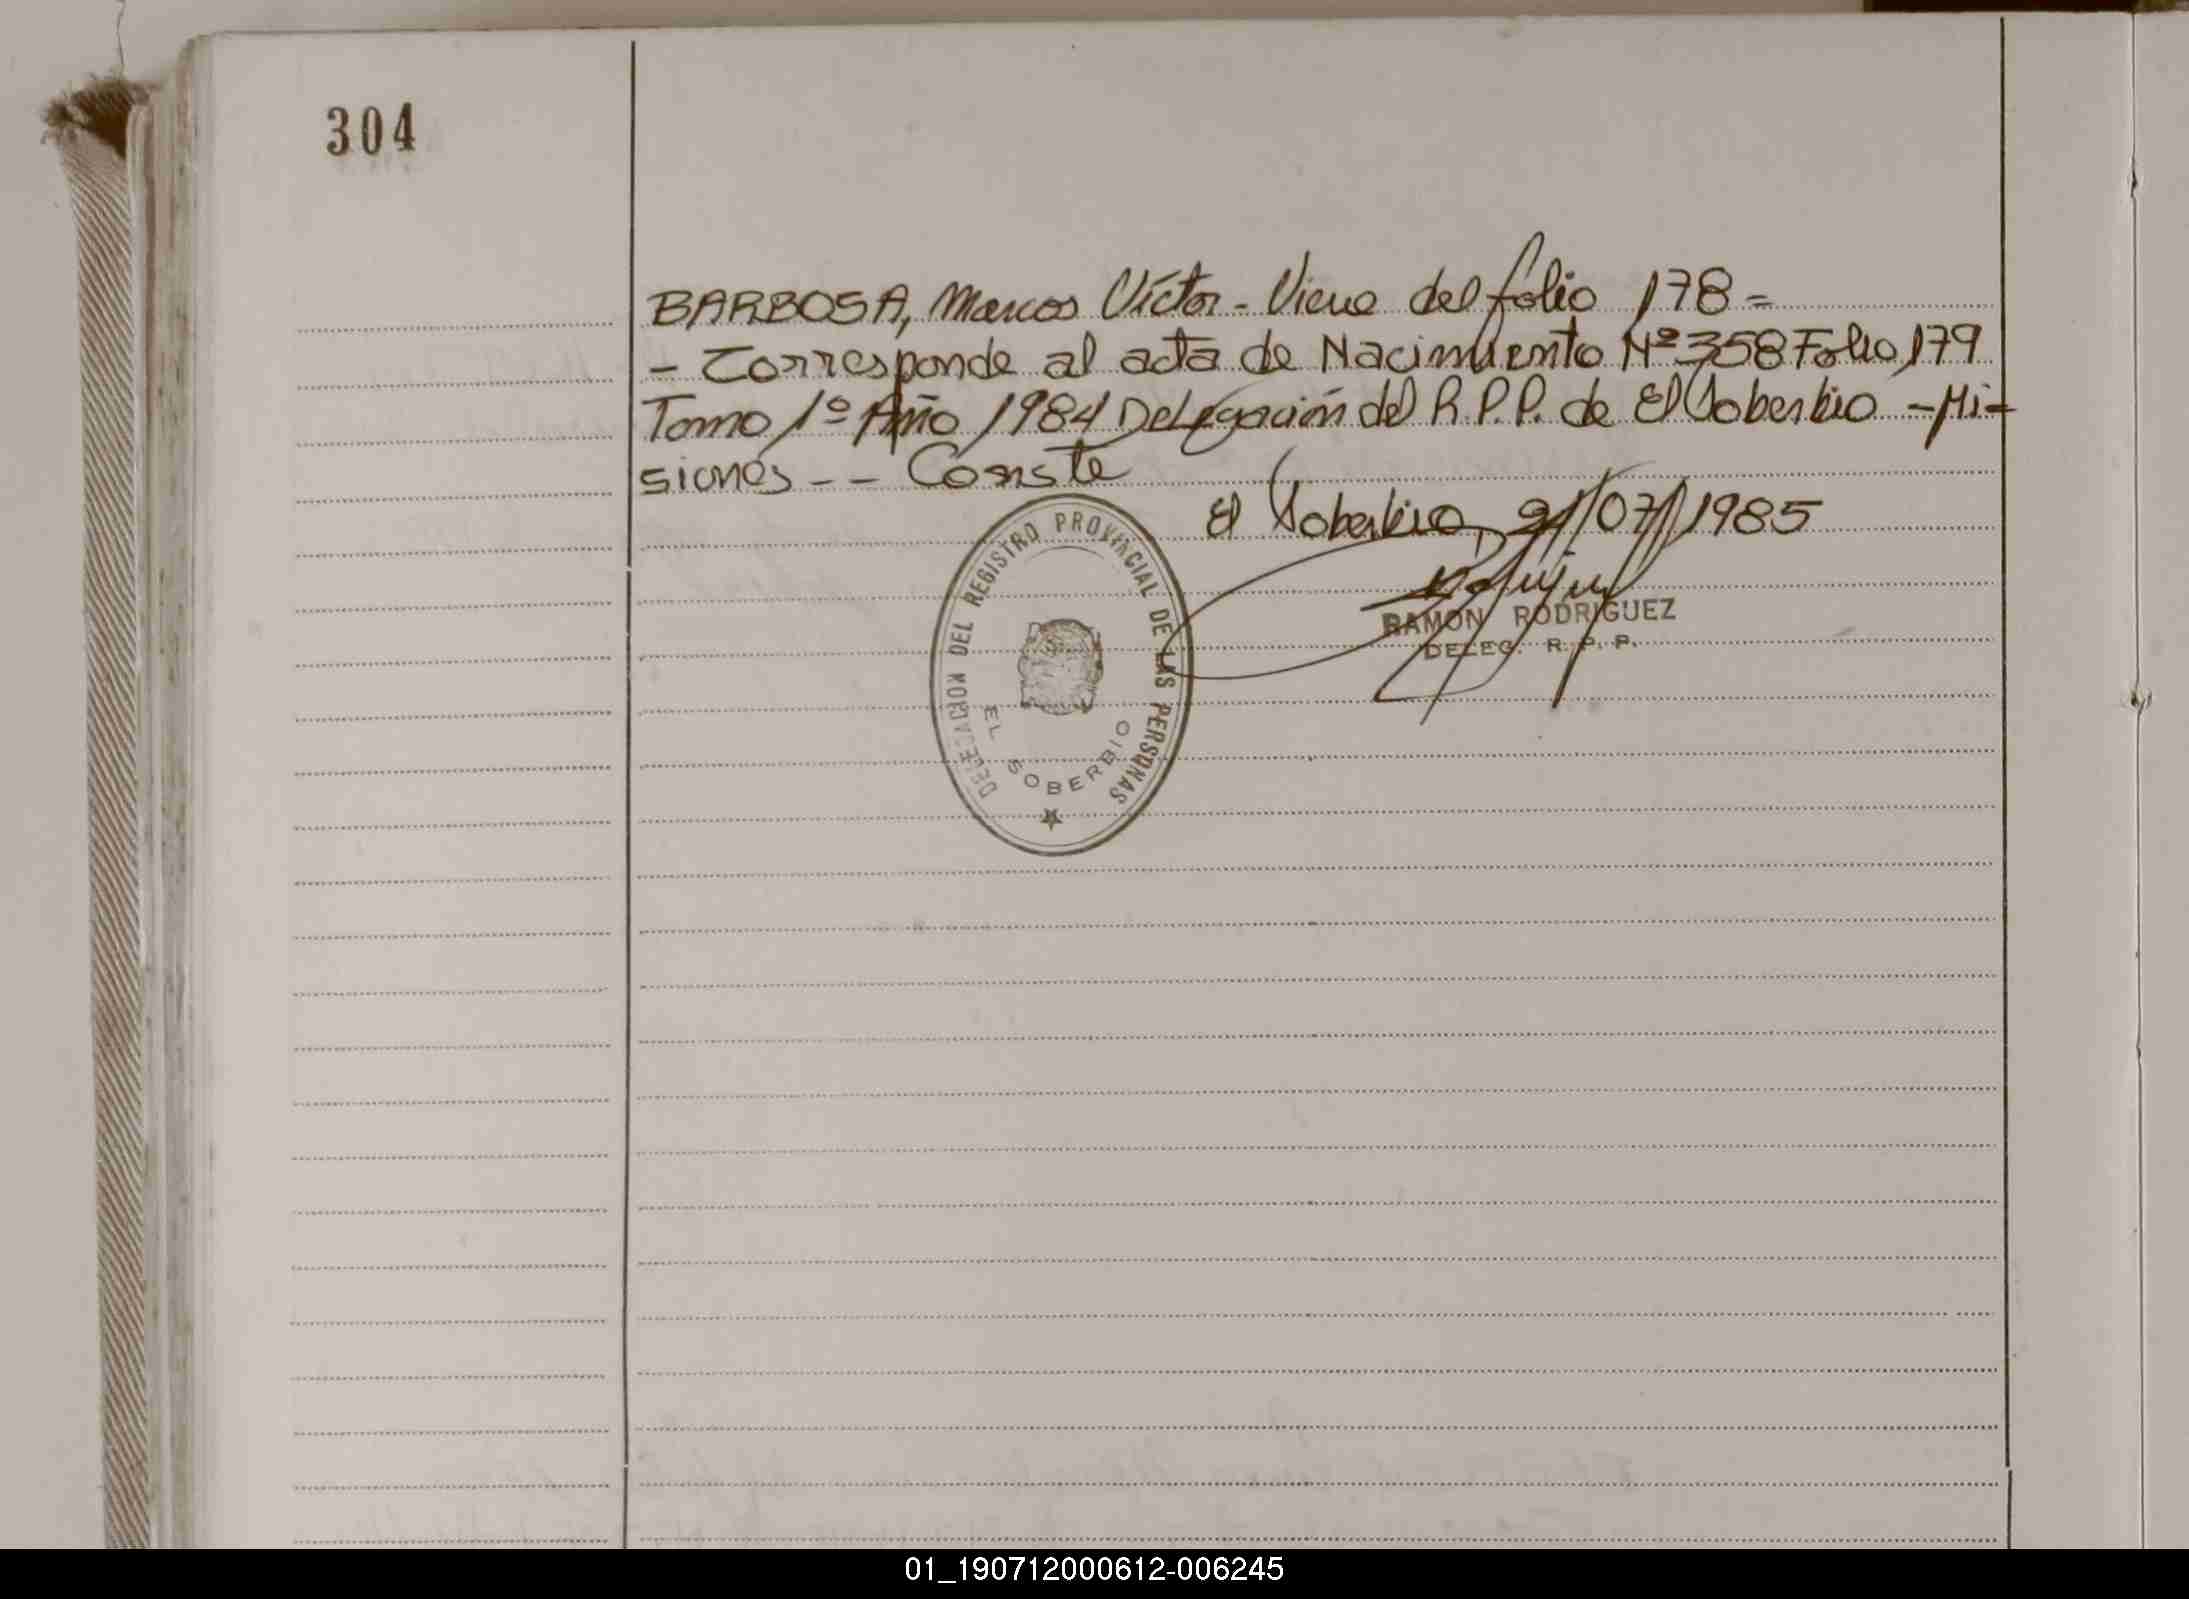 304
BARBOSA, Marcos Víctor - Viene del folio 178 =
- Corresponde al acta de Nacimiento Nº 358 Folio 179
Tomo 1º Año 1984 Delegación del R.P.P. de El Soberbio - Mi-
siones -- Conste
El Soberbio, /07/1985
RAMON RODRIGUEZ
DELEG. R. P. P.
DELEGACION DEL REGISTRO PROVINCIAL DE LAS PERSONAS
EL SOBERBIO
01_190712000612-006245